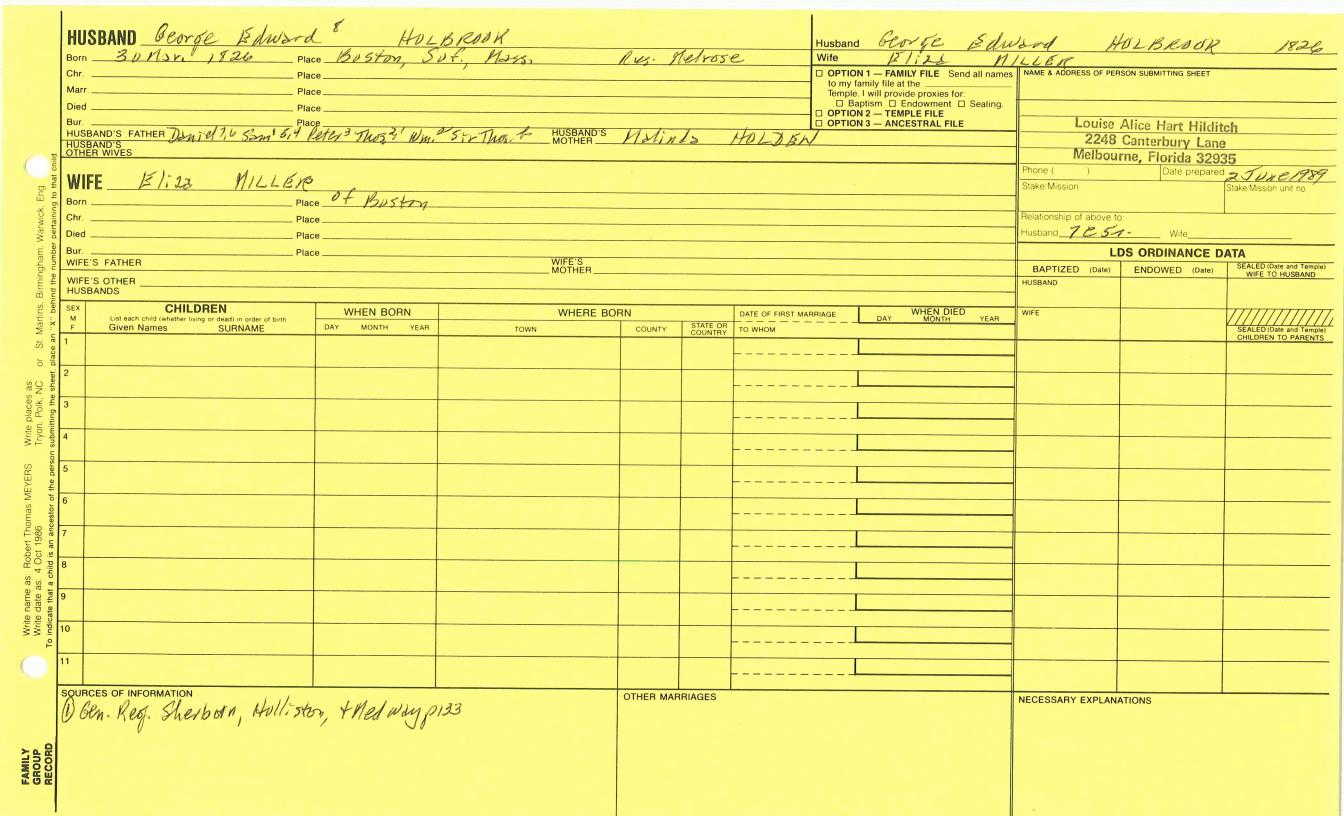 HUSBAND George Edward 8 HOLBROOK
Born 30 Mar. 1826 Place Boston, Suf., Mass. Res. Melrose
Chr. Place
Marr Place
Died Place
Bur. Place
HUSBAND'S FATHER Daniel 7,6 Sam'l 5,4 Peter 3 Thos 2,1 Wm. Sir Thos. HUSBAND'S MOTHER Malinda HOLDEN
HUSBAND'S OTHER WIVES
Husband George Edward HOLBROOK 1826
Wife Eliza MILLER
☐ OPTION 1 — FAMILY FILE Send all names
to my family file at the
Temple. I will provide proxies for:
☐ Baptism ☐ Endowment ☐ Sealing.
☐ OPTION 2 — TEMPLE FILE
☐ OPTION 3 — ANCESTRAL FILE
NAME & ADDRESS OF PERSON SUBMITTING SHEET
Louise Alice Hart Hilditch
2248 Canterbury Lane
Melbourne, Florida 32935
Phone ( ) Date prepared 2 June 1989
Stake/Mission Stake/Mission unit no.
Relationship of above to:
Husband 7C5r. Wife
WIFE Eliza MILLER
Born Place of Boston
Chr. Place
Died Place
Bur. Place
WIFE'S FATHER WIFE'S MOTHER
WIFE'S OTHER HUSBANDS
LDS ORDINANCE DATA
BAPTIZED (Date) ENDOWED (Date) SEALED (Date and Temple) WIFE TO HUSBAND
HUSBAND
WIFE
SEALED (Date and Temple) CHILDREN TO PARENTS
SEX M F
CHILDREN
List each child (whether living or dead) in order of birth
Given Names SURNAME
WHEN BORN
DAY MONTH YEAR
WHERE BORN
TOWN COUNTY STATE OR COUNTRY
DATE OF FIRST MARRIAGE
TO WHOM
WHEN DIED
DAY MONTH YEAR
1
2
3
4
5
6
7
8
9
10
11
SOURCES OF INFORMATION
① Gen. Reg. Sherborn, Holliston, + Medway p133
OTHER MARRIAGES
NECESSARY EXPLANATIONS
Write name as: Robert Thomas MEYERS Write places as: Tryon, Polk, NC or St. Martins, Birmingham, Warwick, Eng.
Write date as: 4 Oct 1986
To indicate that a child is an ancestor of the person submitting the sheet, place an "X" behind the number pertaining to that child
FAMILY
GROUP
RECORD